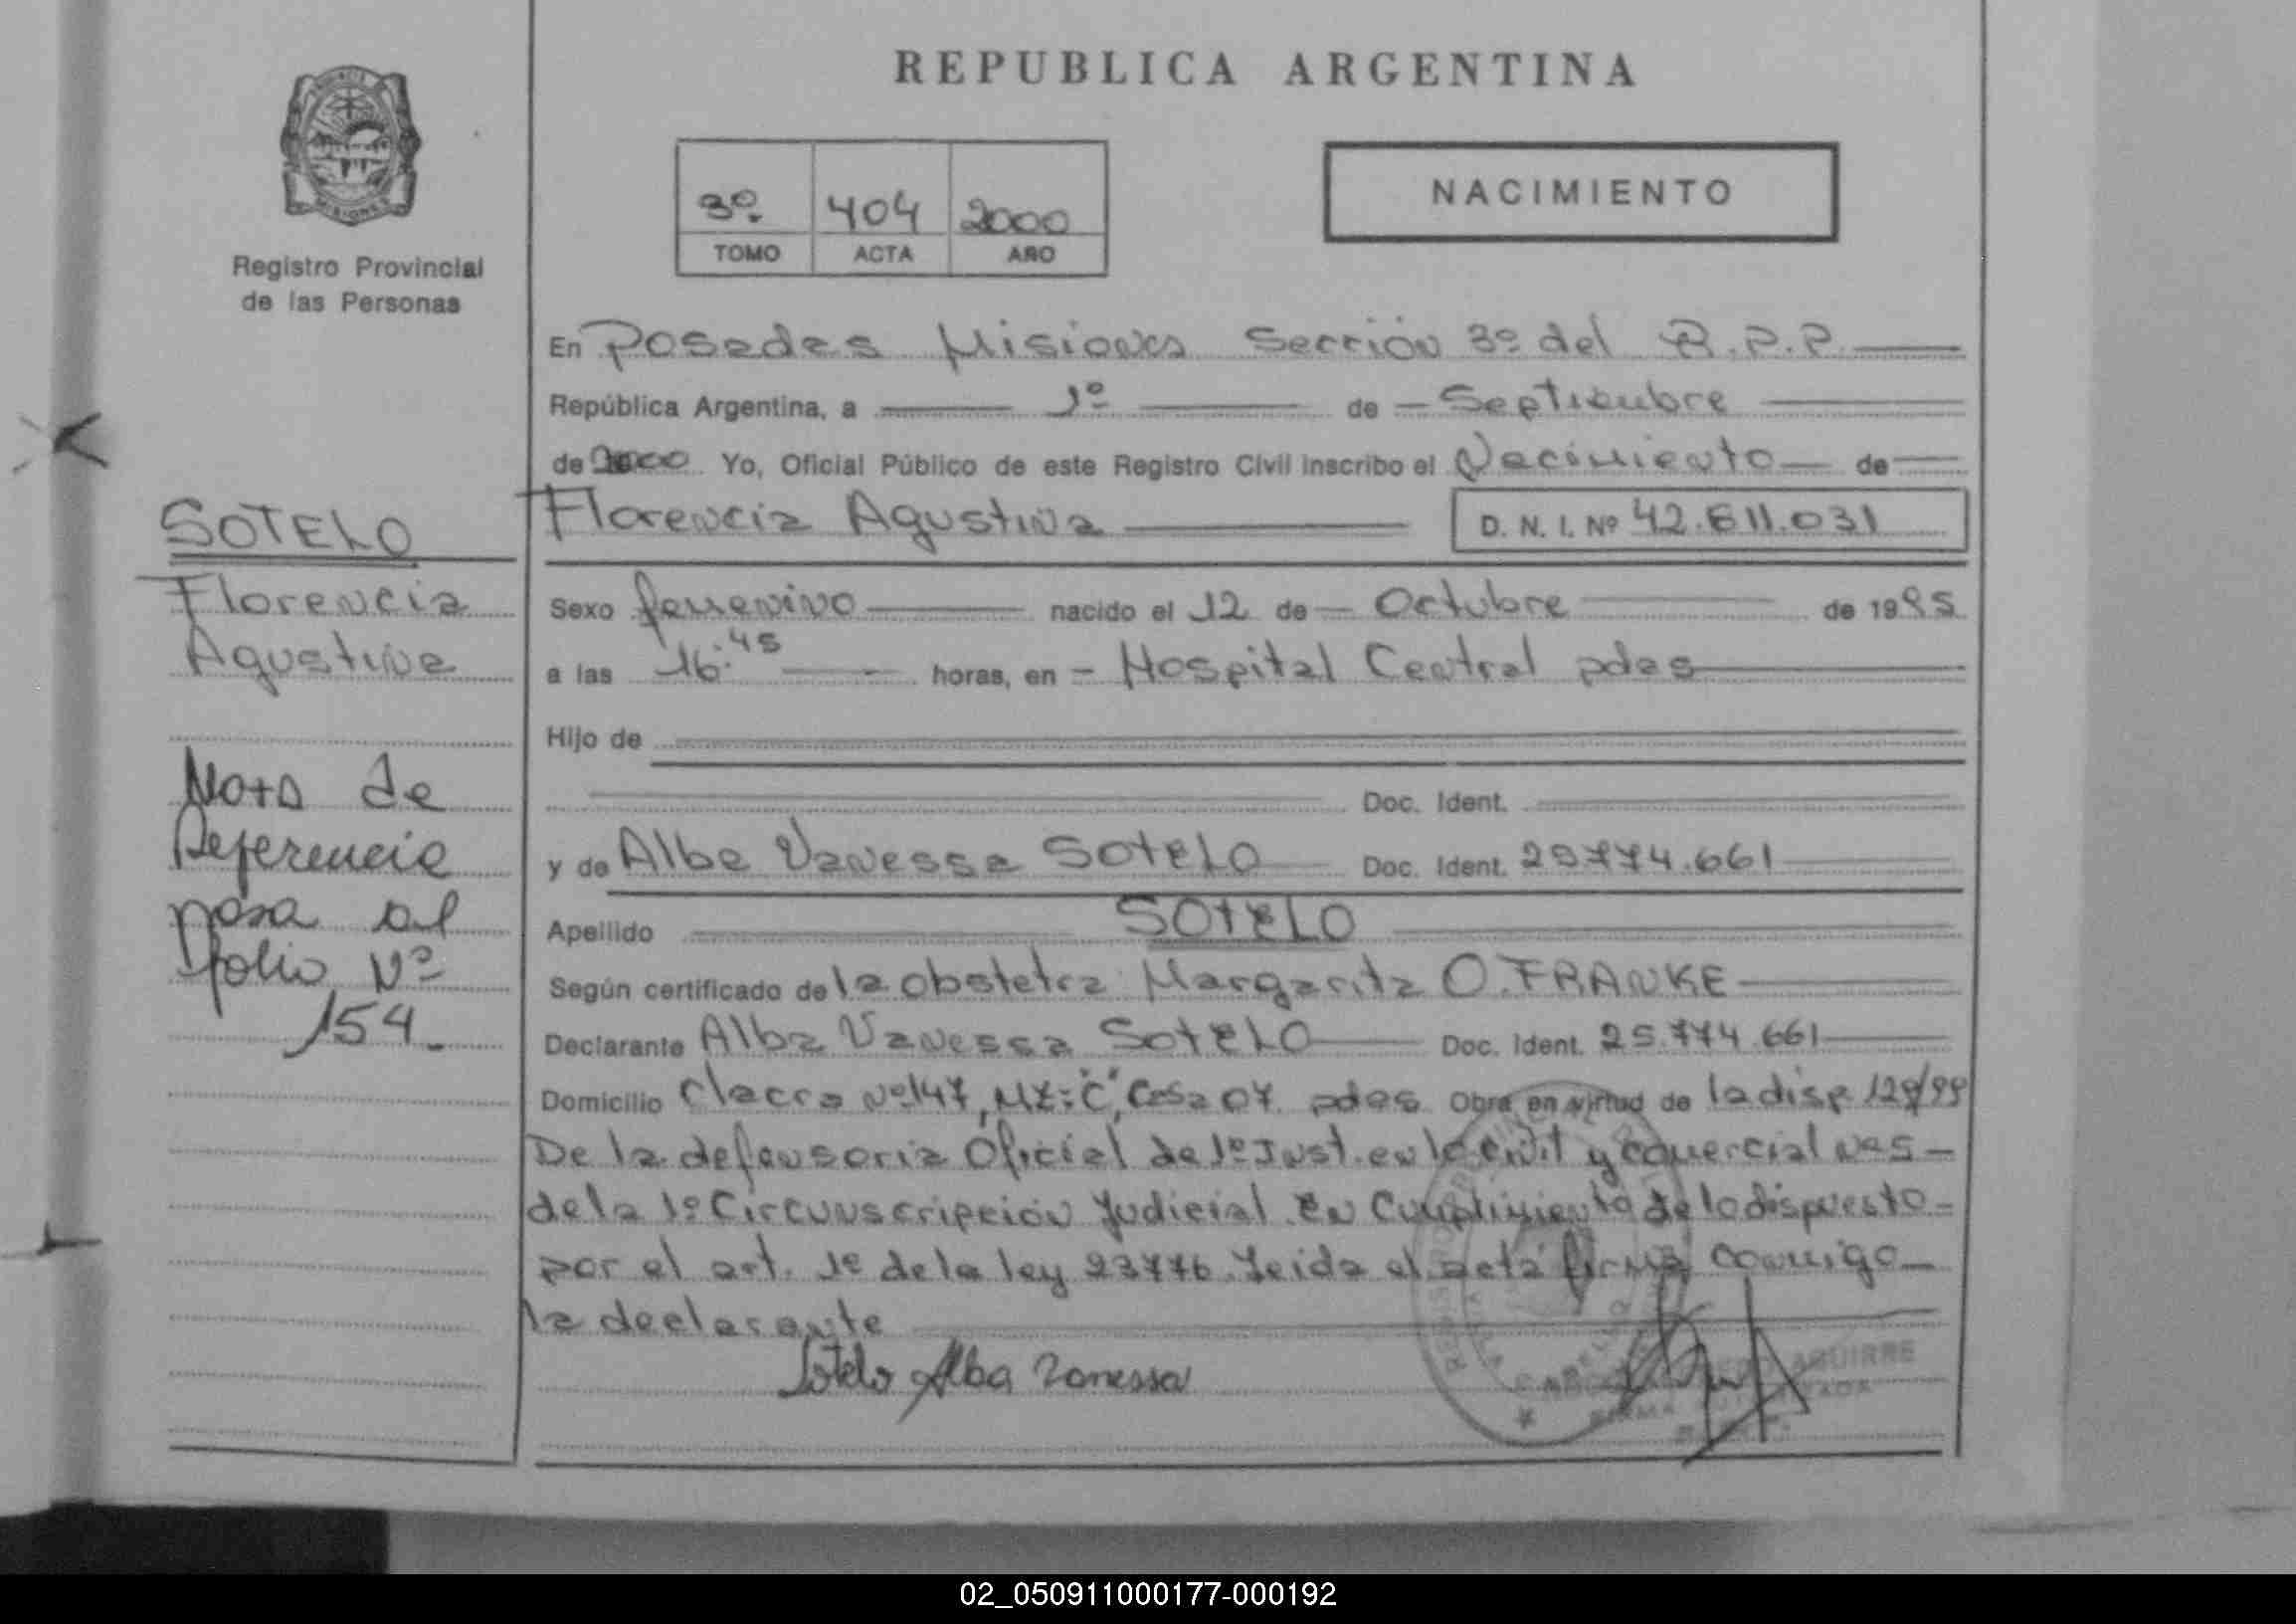 REPUBLICA ARGENTINA
3º 404 2000
TOMO ACTA AÑO
NACIMIENTO
MISIONES
Registro Provincial
de las Personas
SOTELO
Florencia
Agustina
Nota de
Referencia
pasa al
folio Nº
154.
En Posadas Misiones Sección 3º del R.P.P.
República Argentina, a 1º de Septiembre
de 2000 Yo, Oficial Público de este Registro Civil inscribo el Nacimiento de
Florencia Agustina D. N. I. Nº 42.611.031
Sexo femenino nacido el 12 de Octubre de 1995
a las 16:45 horas, en Hospital Central pdas
Hijo de
Doc. Ident.
y de Alba Vanessa SOTELO Doc. Ident. 25.774.661
Apellido SOTELO
Según certificado de la obstetra Margarita O. FRANKE
Declarante Alba Vanessa SOTELO Doc. Ident. 25.774.661
Domicilio Chacra Nº147, MZ:"C", Casa 07 pdas Obra en virtud de la disp 129/99
De la defensoria Oficial de 1º Inst. en lo Civil y comercial Nº5
de la 1º Circunscripción Judicial En Cumplimiento de lo dispuesto
por el art. 1º de la ley 23776. Leida el acta firma conmigo
la declarante
Sotelo Alba Vanessa
AGUIRRE
02_050911000177-000192